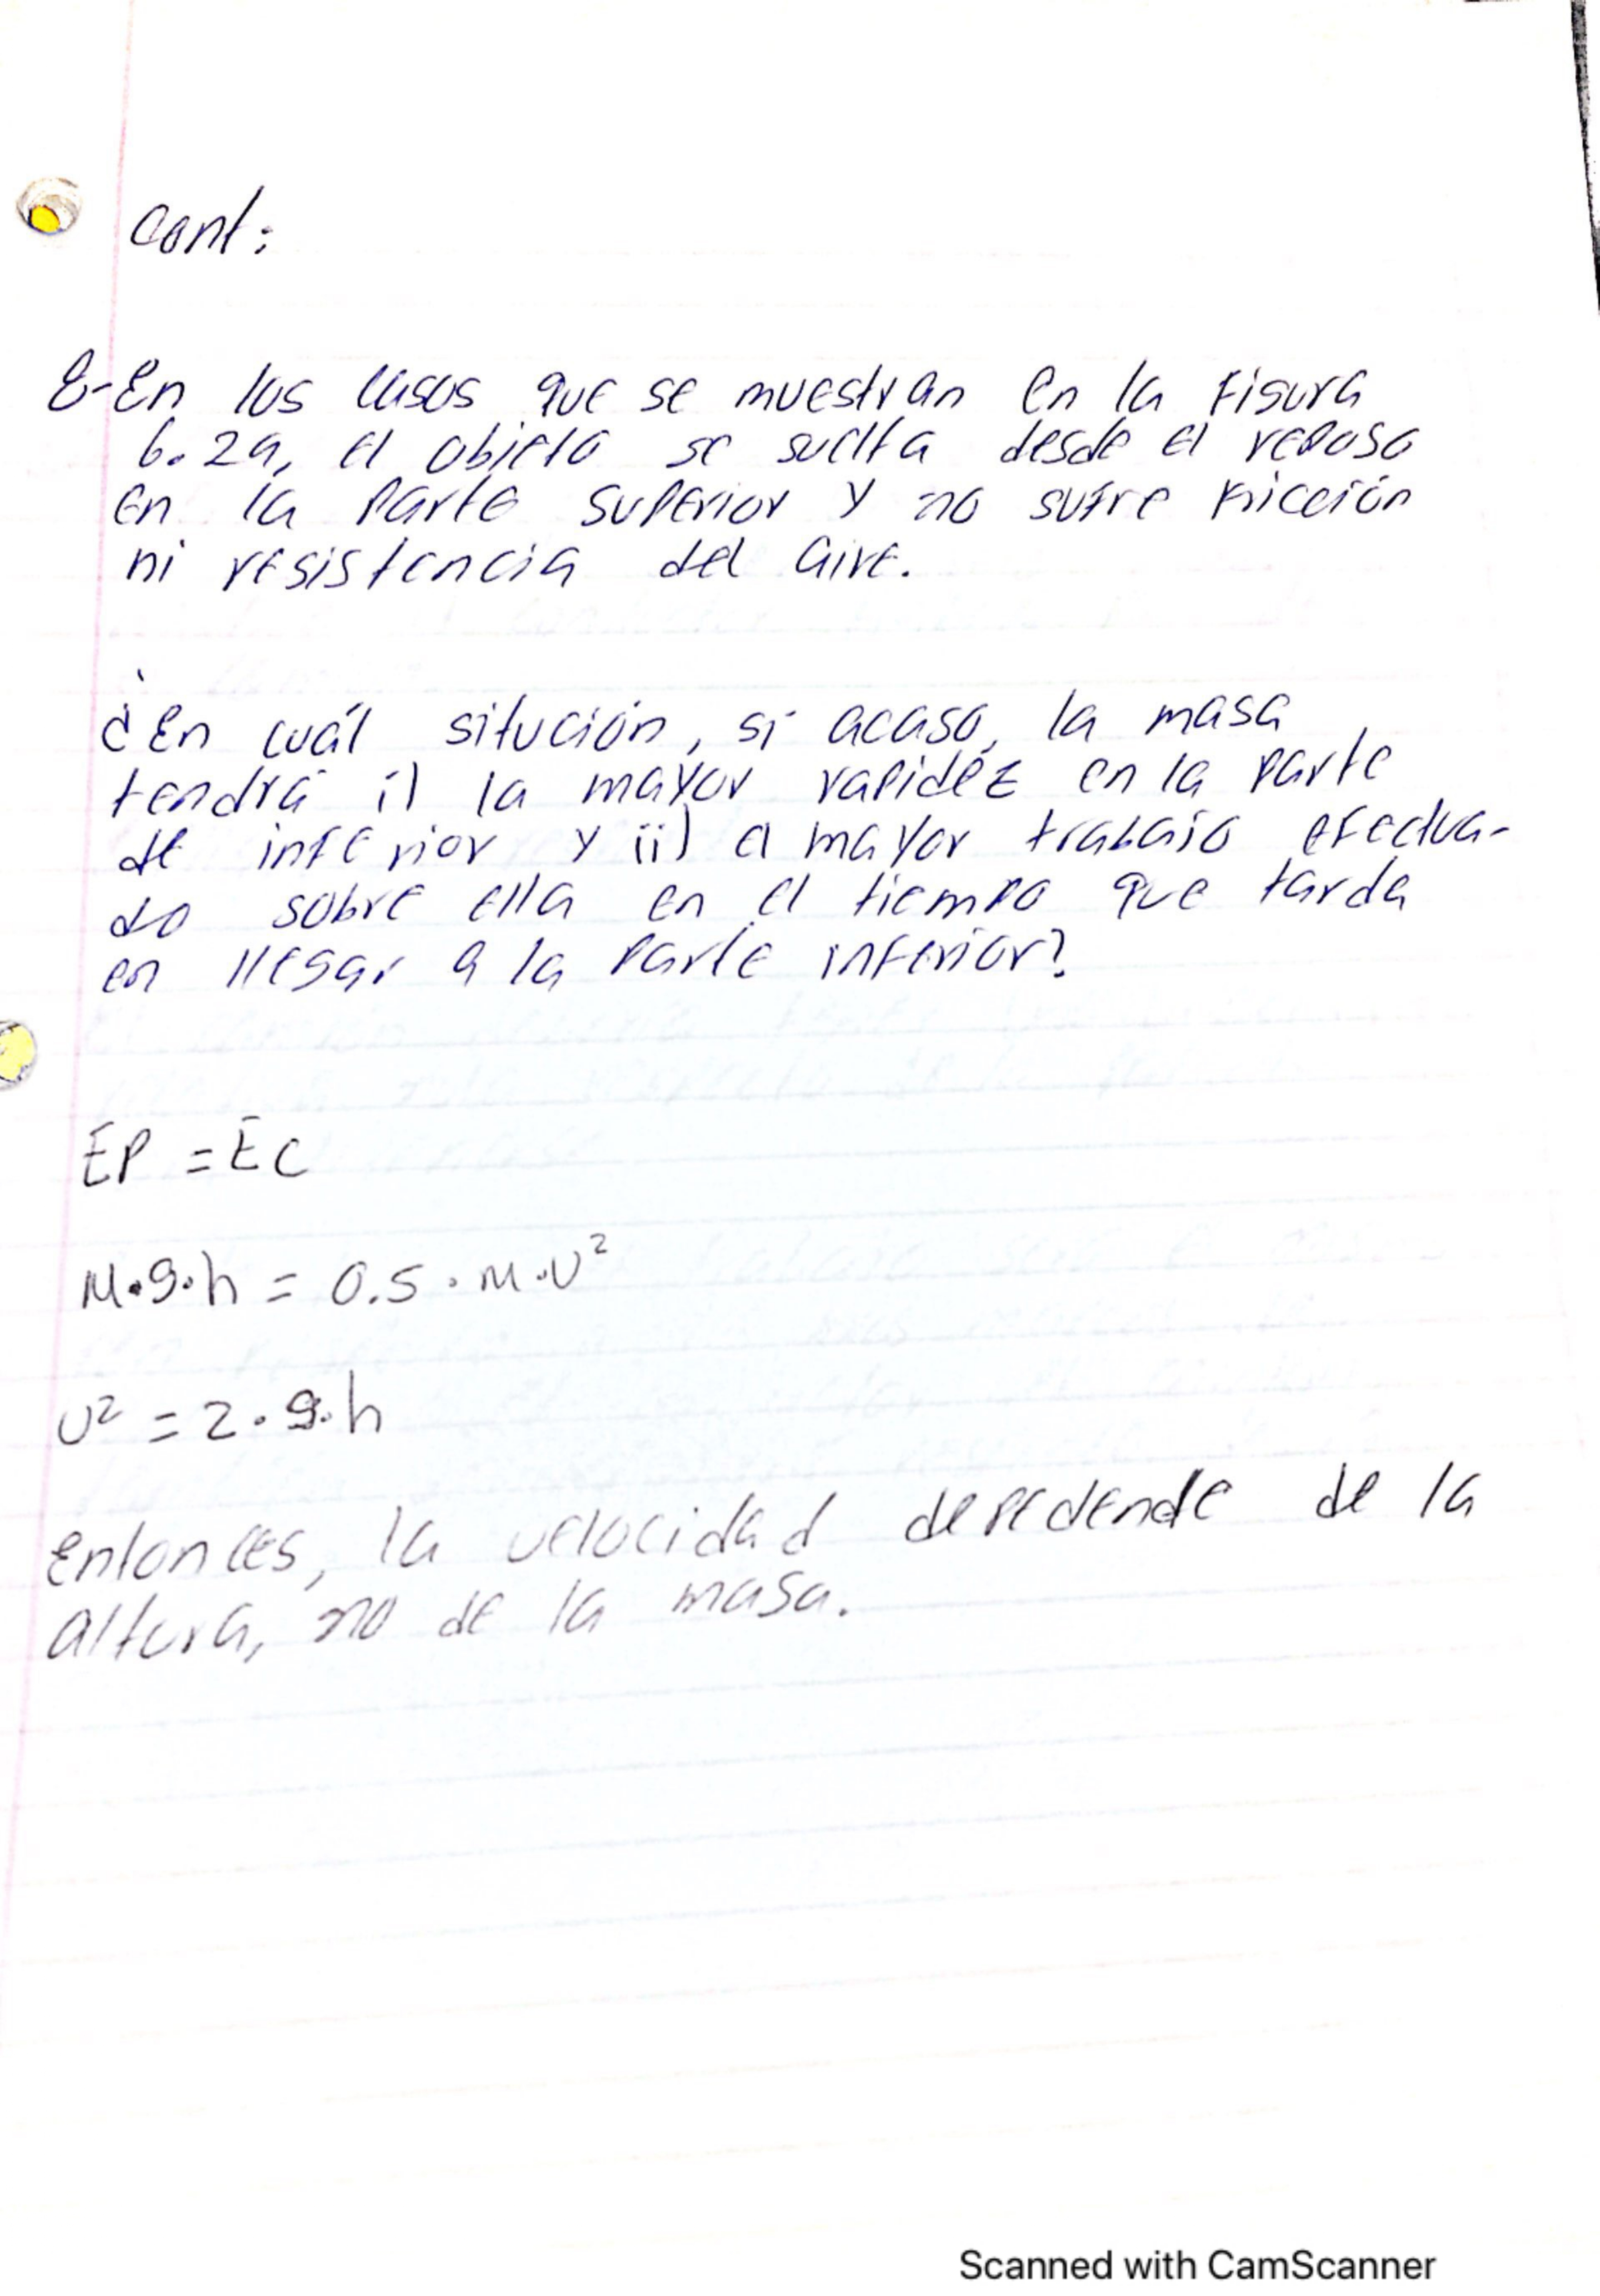 Cont:
8-En los casos que se muestran en la Figura
6.29, el objeto se suelta desde el reposo
en la parte superior y no sufre fricción
ni resistencia del aire.
¿En cuál situción, si acaso, la masa
tendrá i) la mayor rapidez en la parte
de inferior y ii) el mayor trabajo efectua-
do sobre ella en el tiempo que tarda
en llegar a la parte inferior?
EP = EC
M·g·h = 0.5·M·v²
v² = 2·g·h
Entonces, la velocidad depedende de la
altura, no de la masa.
Scanned with CamScanner